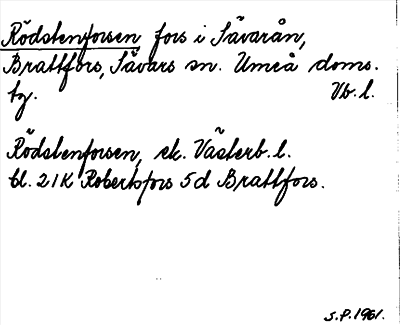 Rödstenforsen fors i Sävarån,
Brattfors, Sävars sn. Umeå doms.
tg. Vb. l.
Rödstenforsen, ek. Västerb. l.
bl. 21K Robertsfors 5d Brattfors.
S.P. 1961.